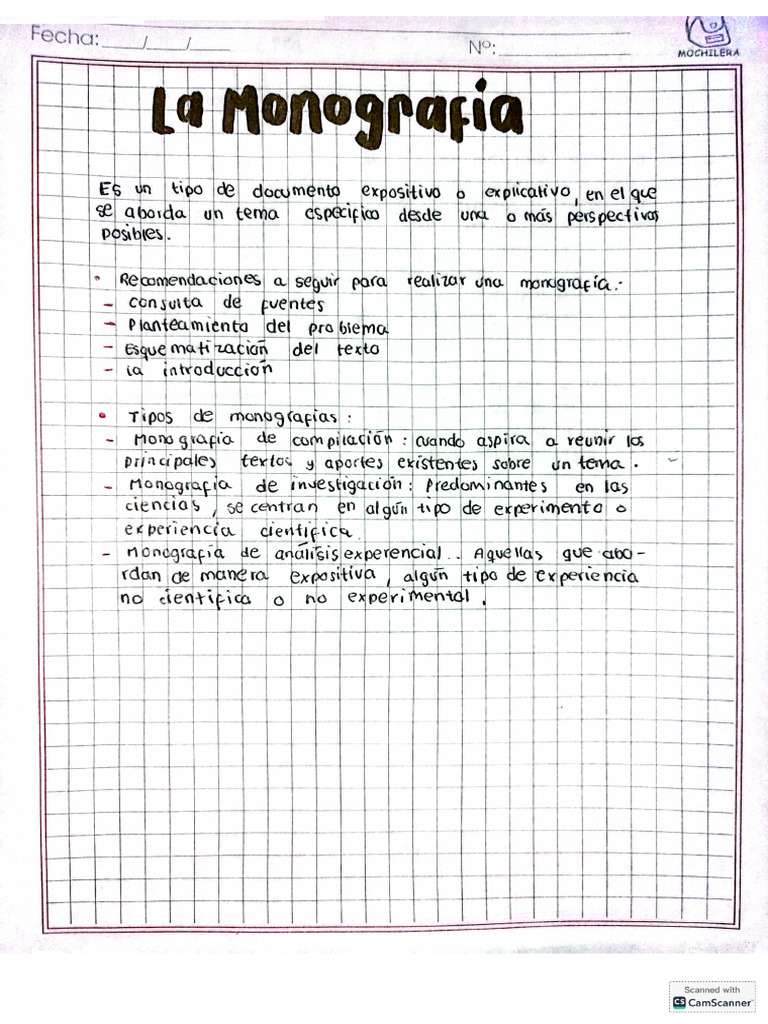 Fecha: ___/___/___
Nº: ___
MOCHILERA
La Monografía
Es un tipo de documento expositivo o explicativo, en el que
se aborda un tema especifico desde una o más perspectivas
posibles.
• Recomendaciones a seguir para realizar una monografía.
- consulta de fuentes
- Planteamiento del problema
- Esquematización del texto
- la introducción
• Tipos de monografias:
- Monografia de compilación: cuando aspira a reunir los
principales textos y aportes existentes sobre un tema.
- Monografia de investigación: Predominantes en las
ciencias, se centran en algún tipo de experimento o
experiencia cientifica.
- Monografía de análisis experencial.. Aquellas que abo-
rdan de manera expositiva, algún tipo de experiencia
no cientifica o no experimental.
Scanned with
CS CamScanner